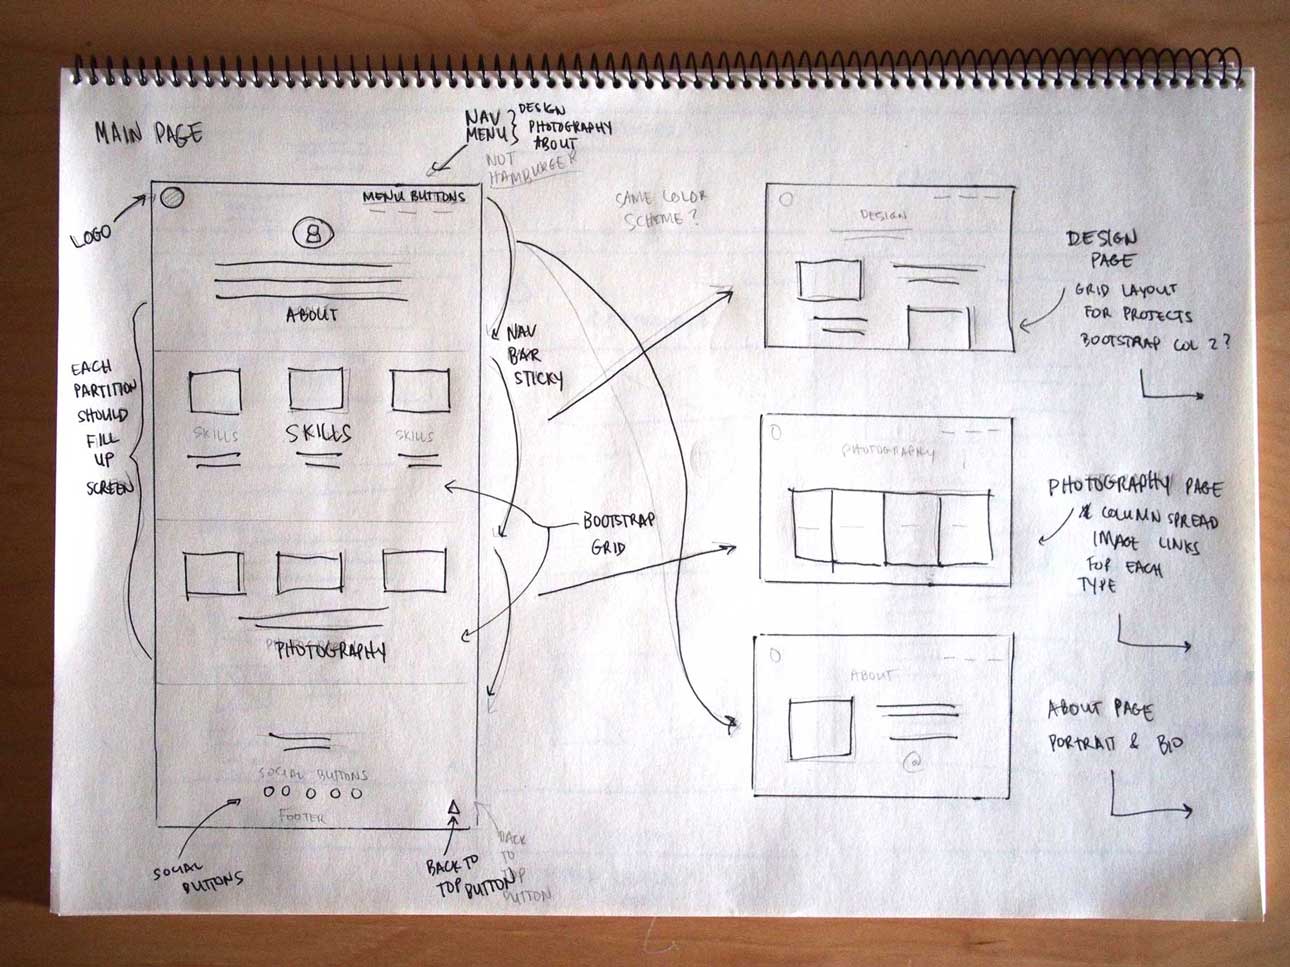 MAIN PAGE
NAV
MENU
DESIGN
PHOTOGRAPHY
ABOUT
NOT
HAMBURGER
LOGO
MENU BUTTONS
ABOUT
EACH
PARTITION
SHOULD
FILL
UP
SCREEN
SKILLS
SKILLS
SKILLS
PHOTOGRAPHY
SOCIAL BUTTONS
FOOTER
SOCIAL
BUTTONS
BACK TO
TOP BUTTON
BACK
TO
TOP
BUTTON
NAV
BAR
STICKY
BOOTSTRAP
GRID
SAME COLOR
SCHEME?
DESIGN
DESIGN
PAGE
GRID LAYOUT
FOR PROJECTS
BOOTSTRAP COL 2?
PHOTOGRAPHY
PHOTOGRAPHY PAGE
COLUMN SPREAD
IMAGE LINKS
FOR EACH
TYPE
ABOUT
@
ABOUT PAGE
PORTRAIT & BIO